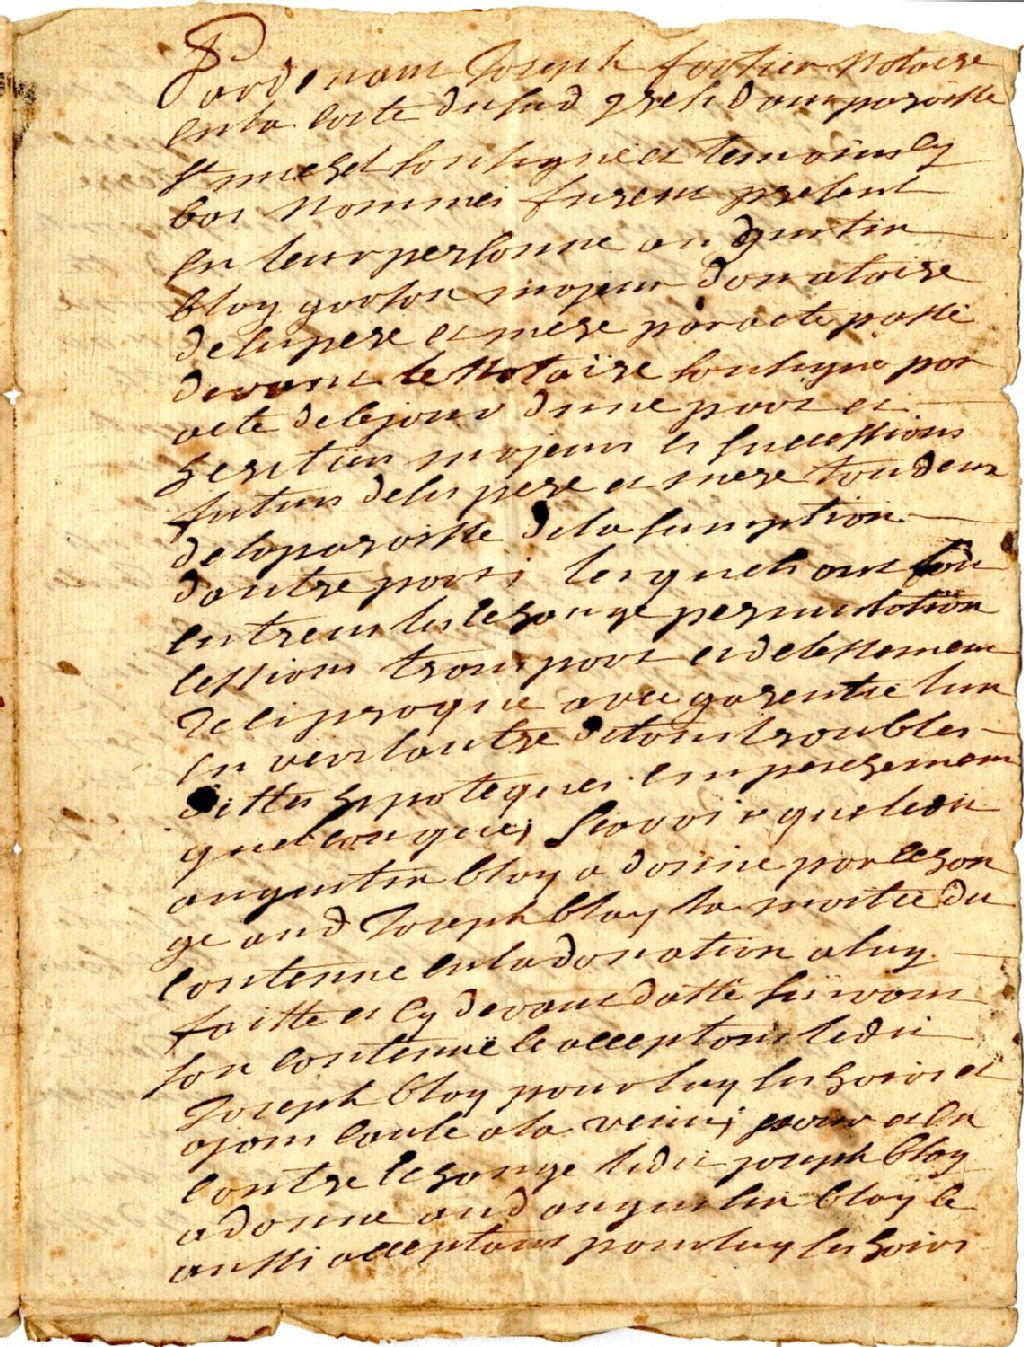 Pardevant Joseph fortier Notaire
en la Coste du sud resident paroisse
st michel soussigné et temoins cy
bas Nommés furent present
en leur personne augustin
bloy garson majeur donatoire
de ses pere et mere par acte passé
devant le Notaire soussigné par
acte de ce jour d'une part et
heritier majeur es successions
futurs de ses pere et mere tou deux
de la paroisse de lasumption
dautre part; lesquels ont fait
entreux les echange permutation
cessions transport et delessement
Reciproque avec garentie lun
en vers lautre de tous troubles
dettes hipoteques empechement
quelconques, Scavoir que ledit
augustin bloy a donné par echan
ge aud Joseph bloy la moitié du
contenue en la donation a luy
faitte et cy devant datté suivant
son contenue ce acceptant ledit
Joseph bloy pour luy ses hoirs et
ayant cause a la venir; pour et en
contre echange ledit joseph bloy
a donné aud augustin bloy ce
aussi acceptant pour luy ses hoirs